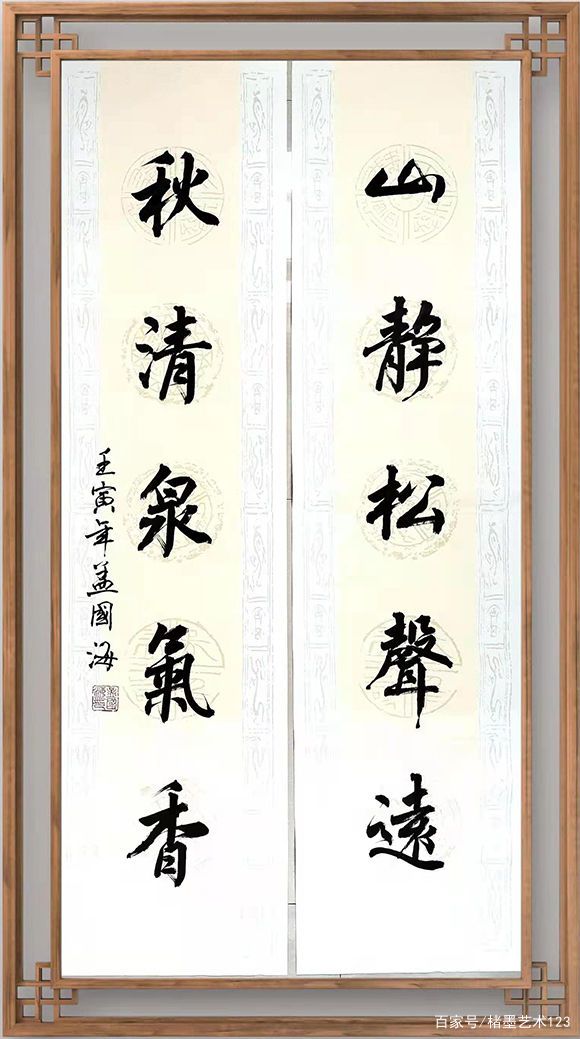 山靜松聲遠
秋清泉氣香
壬寅年孟國海
百家号/楮墨艺术123